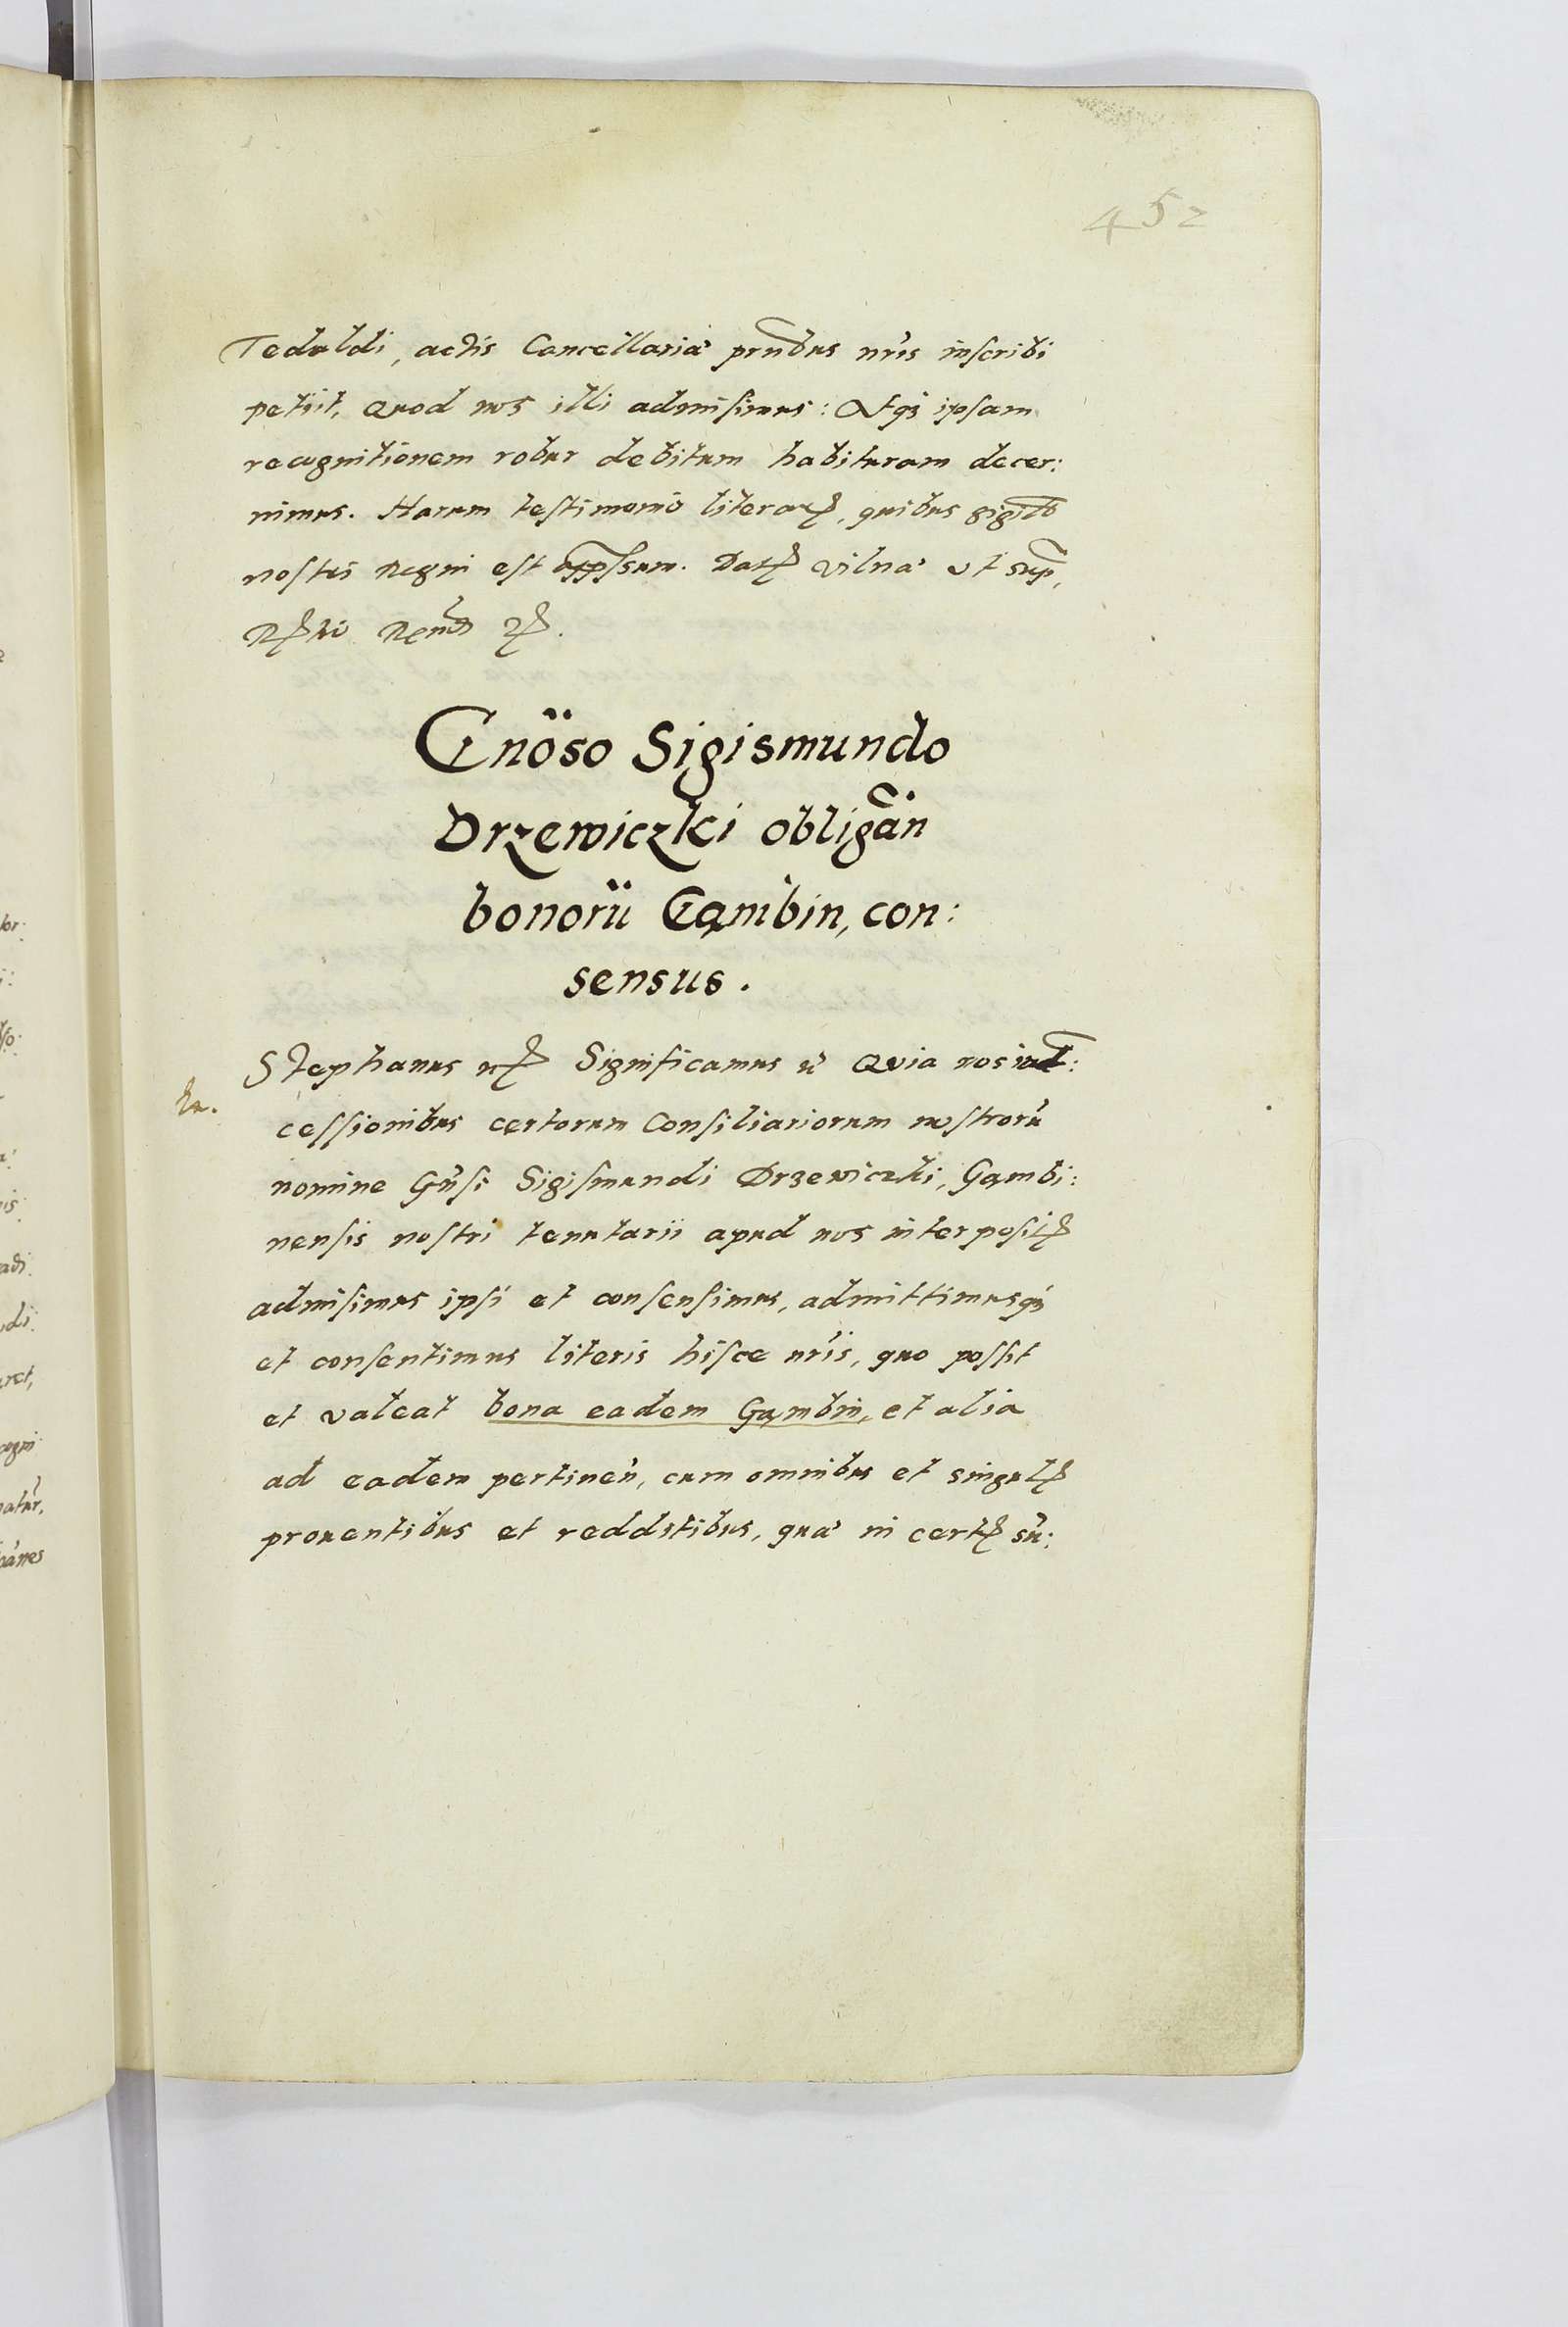 452
Tedaldi, actis Cancellariæ prntbus nr̃is inscribi
petiit, Quod nos illi admisimus: Atq3 ipsam
recognitionem robur debitum habituram decer:
nimus. Harum testimonio literarꝝ, quibus sigillũ
nostri Regni est appssum. Datꝭ Vilnæ ut sup,
Gnõso Sigismundo
Drzewiczki obligãn
bonorũ Gąmbin, con:
sensus.
Stephanus ꝛꝭ Significamus ꝛc̃ Quia nos int:
cessionibus certorum Consiliariorum nostrorũ
nomine Gñsi Sigismundi Drzewiczki, Gąmbi:
nensis nostri tenutarii apud nos interpositꝭ
admisimus ipsi et consensimus, admittimusq3
et consentimus literis hisce nr̃is, quo possit
et valeat bona eadem Gąmbin, et alia
ad eadem pertineñ, cum omnibus et singulꝭ
prouentibus et redditibus, quæ in certꝭ sũ: